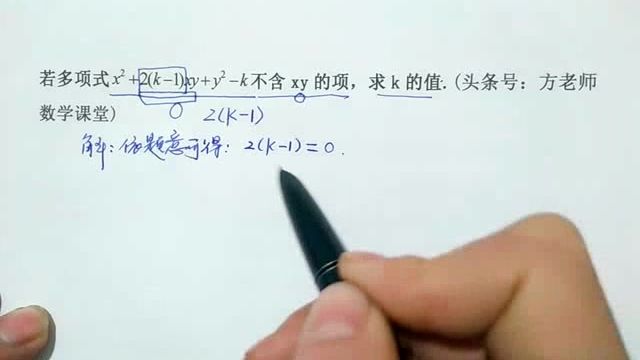 若多项式x²+2(k−1)xy+y²−k不含 xy 的项，求 k 的值. (头条号：方老师
数学课堂)
0 2(k-1)
解：依题意可得：2(k-1)=0.